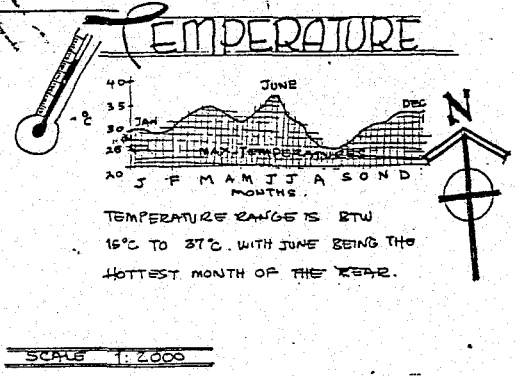 TEMPERATURE
40
35
30
25
20
°C
JAN
JUNE
DEC
MAX TEMPERATURES
J F M A M J J A S O N D
MONTHS.
TEMPERATURE RANGE IS BTW
15°C TO 37°C. WITH JUNE BEING THE
HOTTEST MONTH OF THE YEAR.
N
SCALE 1:2000